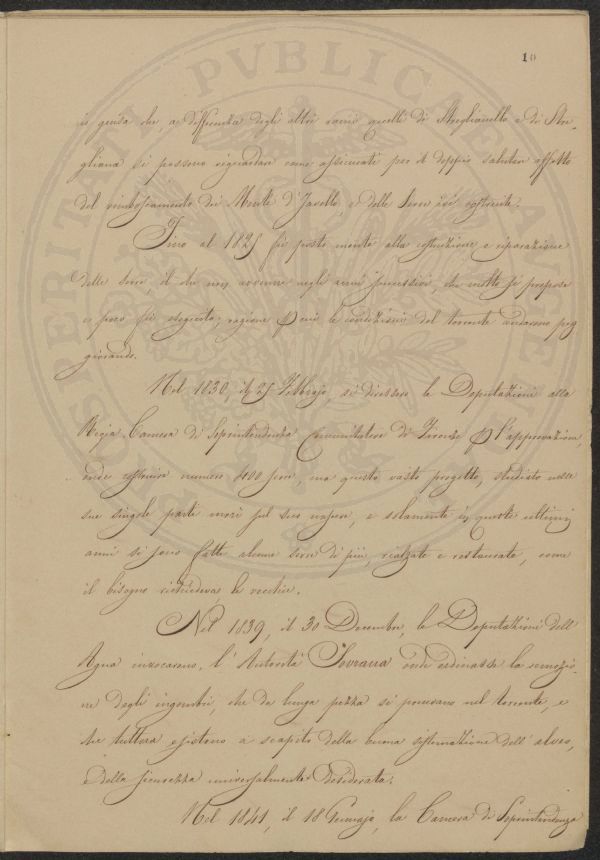 10
in guisa che, a differenza degli altri rami quelli di Streglianella e di Stre-
gliana si possono riguardare come assicurati per il doppio salutare effetto
del rimboscamento dei Monti d'Javello, e delle Serre ivi costruite.
Fino al 1825 fù posto mente alla costruzione e riparazione
delle serre, il che non avvenne negli anni successivi, che molto si propose
e poco fù eseguito; ragione per cui le condizioni del torrente andarono peg
giorando.
Nel 1830, il 25 Febbrajo, si diressero le Deputazioni alla
Regia Camera di Soprintendenza Comunitativa di Firenze per l'approvazione,
onde costruire numero 400 serre, ma questo vasto progetto, studiato nelle
sue singole parti morì sul suo nascere, e solamente in questi ultimi
anni si sono fatte alcune serre di più, rialzate e restaurate, come
il bisogno richiedeva le vecchie.
Nel 1839, il 30 Decembre, le Deputazioni dell'
Agna invocarono, l'Autorità Sovrana onde ordinasse la remozio-
ne degli ingombri, che da lunga pezza si ponevano nel torrente, e
che tuttora esistono a scapito della buona sistemazione dell'alveo,
e della sicurezza universalmente desiderata.
Nel 1841, il 18 Gennajo, la Camera di Soprintendenza
PROSPERITATI PVBLICAE